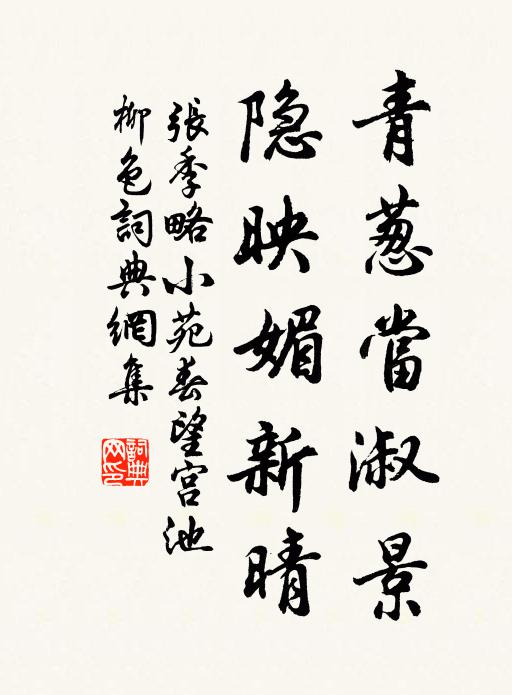 青葱當淑景
隐映媚新晴
張季略小苑春望宮池
柳色詞典網集
詞典網印